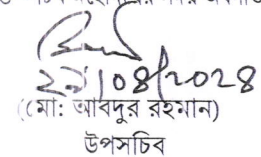 ২৯|০৪|২০২৪
(মো: আবদুর রহমান)
উপসচিব